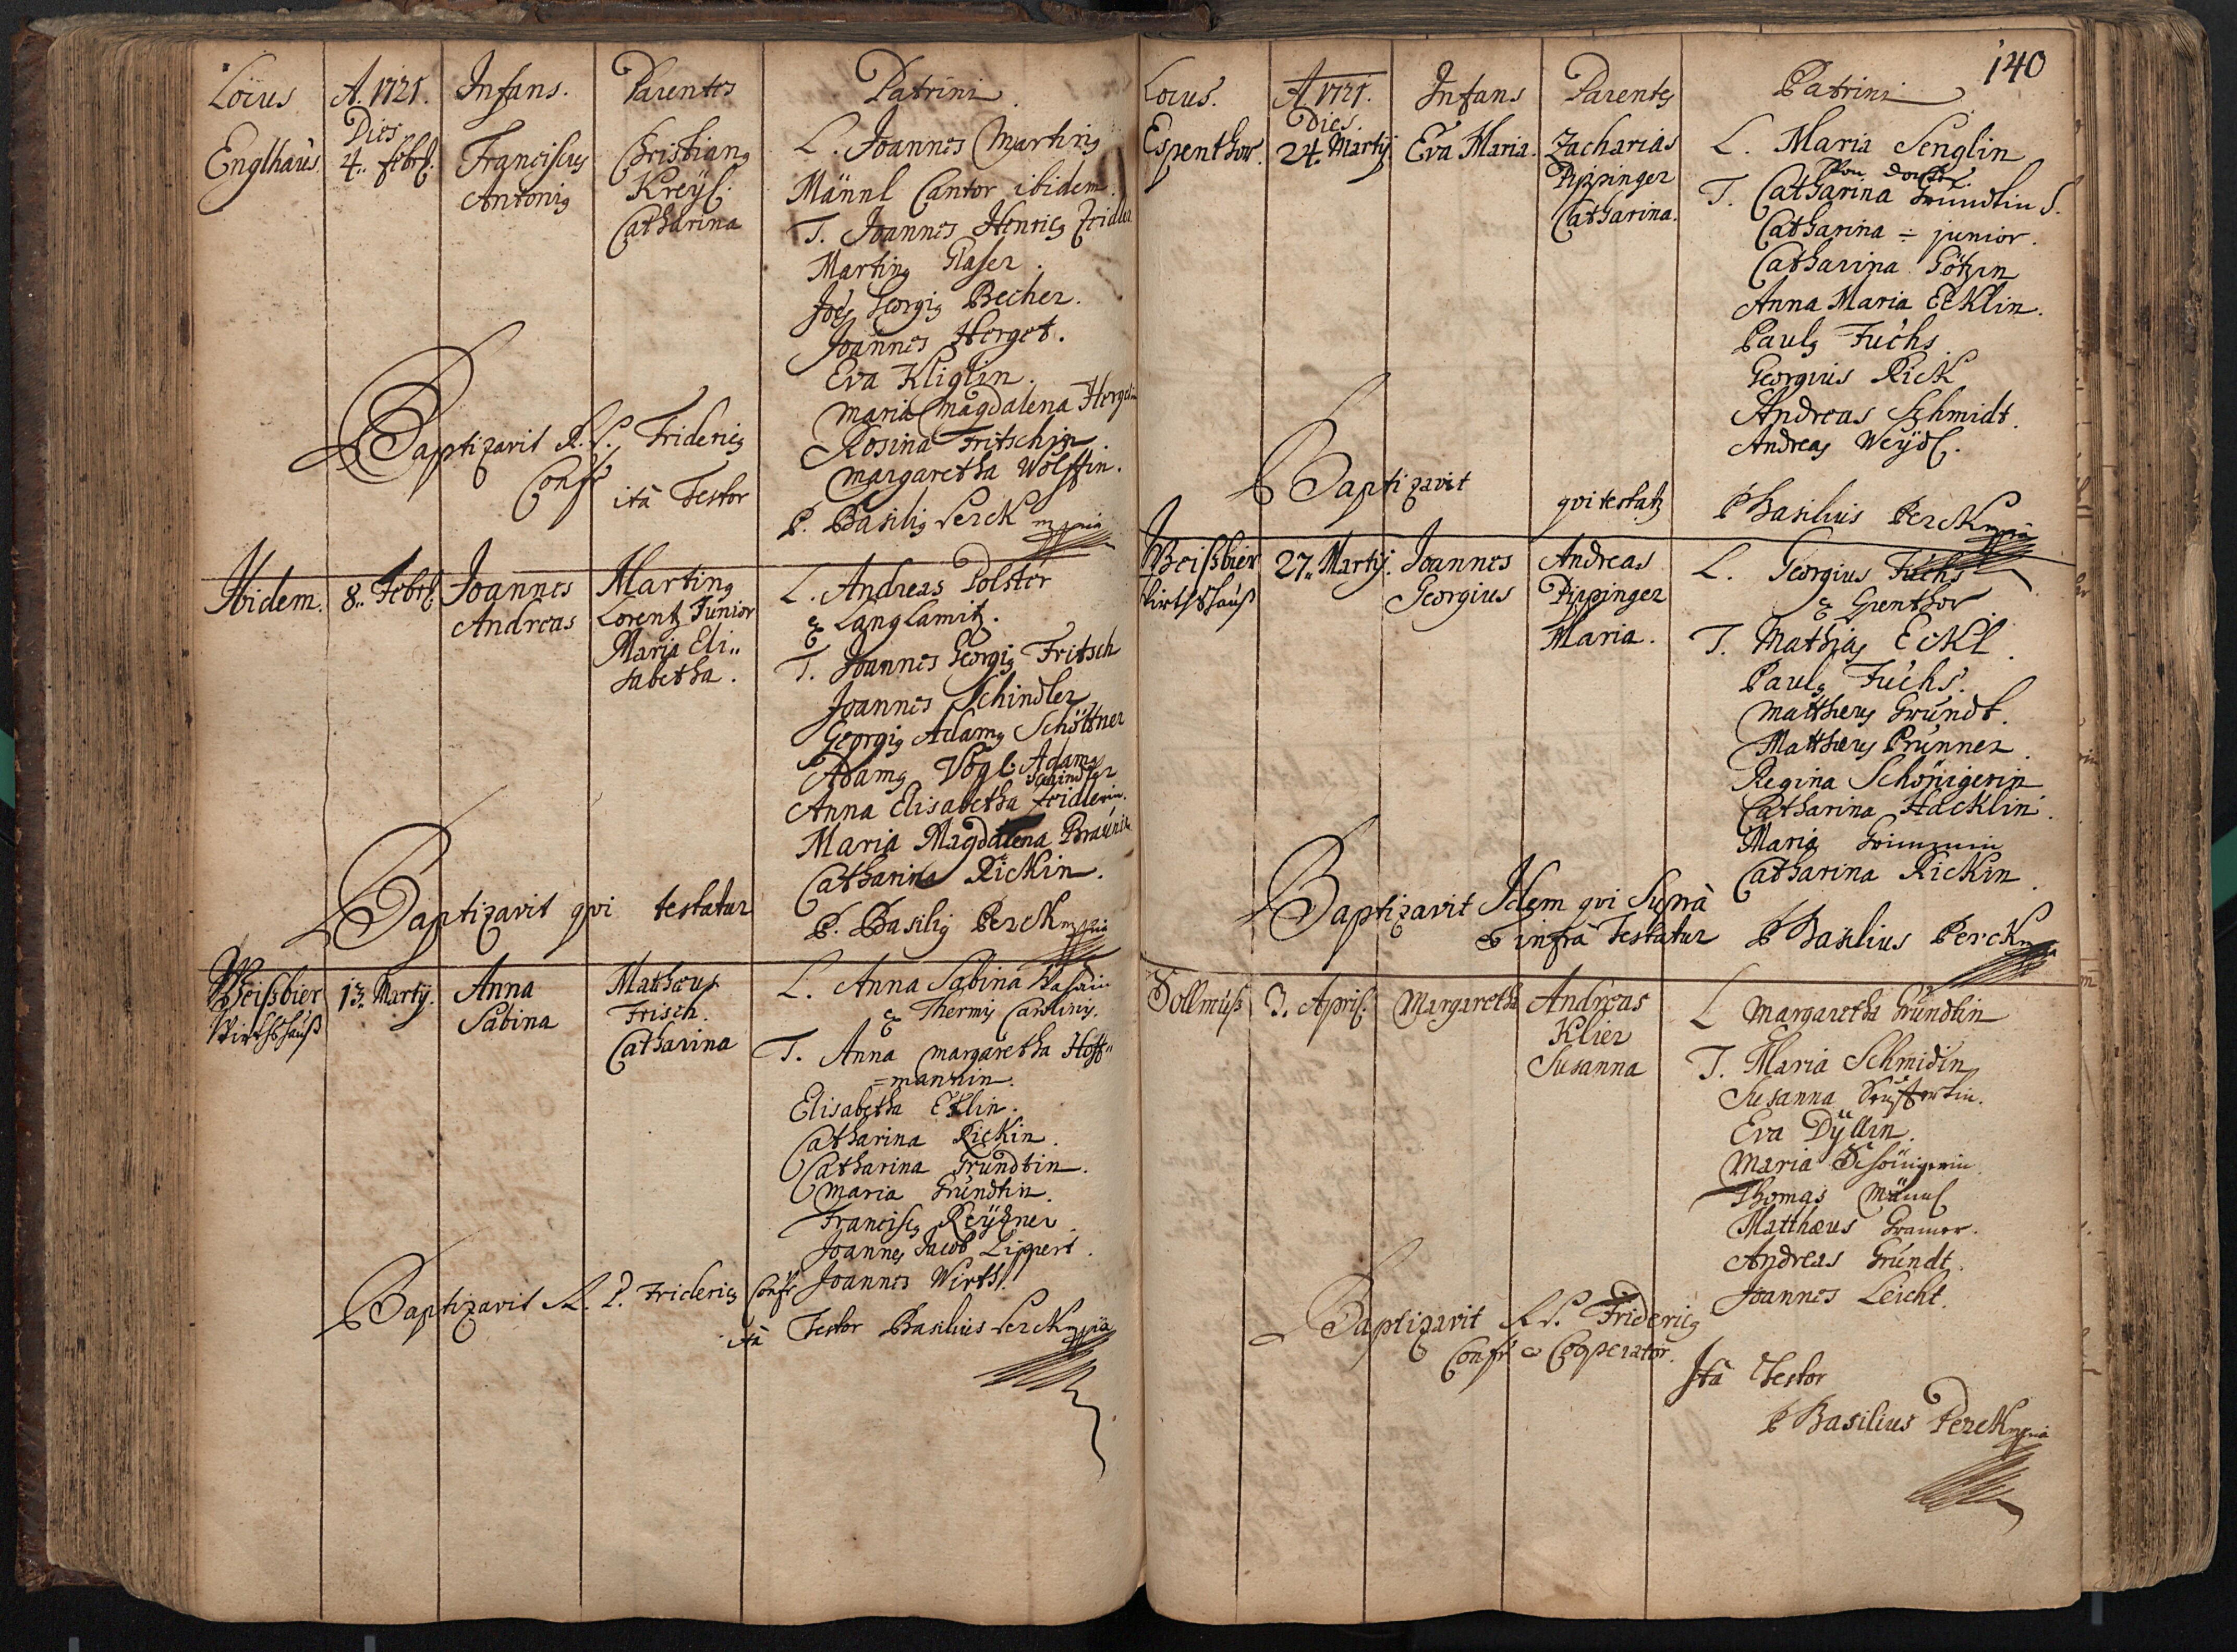 Locus
A. 1721.
Infans.
Parentes
Patrini.
Dies
Englhaus
4. Febr.
Franciscus
Antonig
Christiang
Kreysl.
Catharina
L. Joannes Marting
Männl Cantor ibidem.
T. Joannes Henricg
Marting Glaser.
Joes Georgig Becher.
Joannes Herget.
Eva Kliglin.
Maria Magdalena
Rosina Fritschin.
Margaretha Wolffin.
Baptizavit R. P. Fridericg
Confr
ità Testor
P. Basilig Perck mpria
Ibidem.
8. Febr.
Joannes
Andreas
Marting
Lorentz Junior
Maria Eli„
sabetha.
L. Andreas Polster
è Langlamitz.
T. Joannes Georgig Fritsch
Joannes Schindler
Georgig Adamg Schöttner
Adamg Vogl. Adamg
Schindler
Anna Elisabetha Fridlerin.
Maria Magdalena
Catharina Rickin.
Baptizavit qvi testatur
P. Basilig Perck mpria
Weißbier
Wirthshauß
13. Martij.
Anna
Sabina
Matthæus
Frisch.
Catharina
L. Anna Sabina
è Thermis Carolinis.
T. Anna Margaretha Hoff„
=mannin.
Elisabetha Eklin.
Catharina Rickin.
Catharina Grundtin.
Maria Gründtin.
Franciscg
Joannes Jacob Lippert.
Joannes Wirth.
Baptizavit R. P. Fridericg Confr
ità Testor Basilius Perck mpria
140
Locus.
A. 1721.
Infans
Parentes
Patrini
Dies.
Espenthor.
24. Martij.
Eva Maria.
Zacharias
Pippinger
Catharina.
L. Maria Senglin
T. Catharina Grundtin S.
Catharina ÷ junior.
Catharina Götzin
Anna Maria Ecklin.
Paulg Fuchs.
Georgius Rick
Andreas Schmidt.
Andreas Weydl.
Baptizavit qvi testatz
P Basilius Perck mpria
Weißbier
Wirthshauß
27. Martij.
Joannes
Georgius
Andreas
Pippinger
Maria.
L. Georgius Fuchs
è Espenthor
T. Mathias Eckl.
Paulg Fuchs.
Matthæus Gründt.
Matthæus Prünner.
Regina Schönigerin
Catharina Hacklin.
Maria
Catharina Rickin.
Baptizavit Idem qvi Suprà
& infrà Testatur P Basilius Perck mpria
Sollmuß
3. April.
Margaretha
Andreas
Klier
Susanna
L Margaretha Gründtin
T. Maria Schmidin
Susanna
Eva Dÿllin.
Maria Schönigerin.
Thomas Männl
Matthæus Gramer.
Andreas Gründt.
Joannes Leicht.
Baptizavit R. P. Fridericg
Confr & Cooperator.
Ità Testor
P Basilius Perck mpria